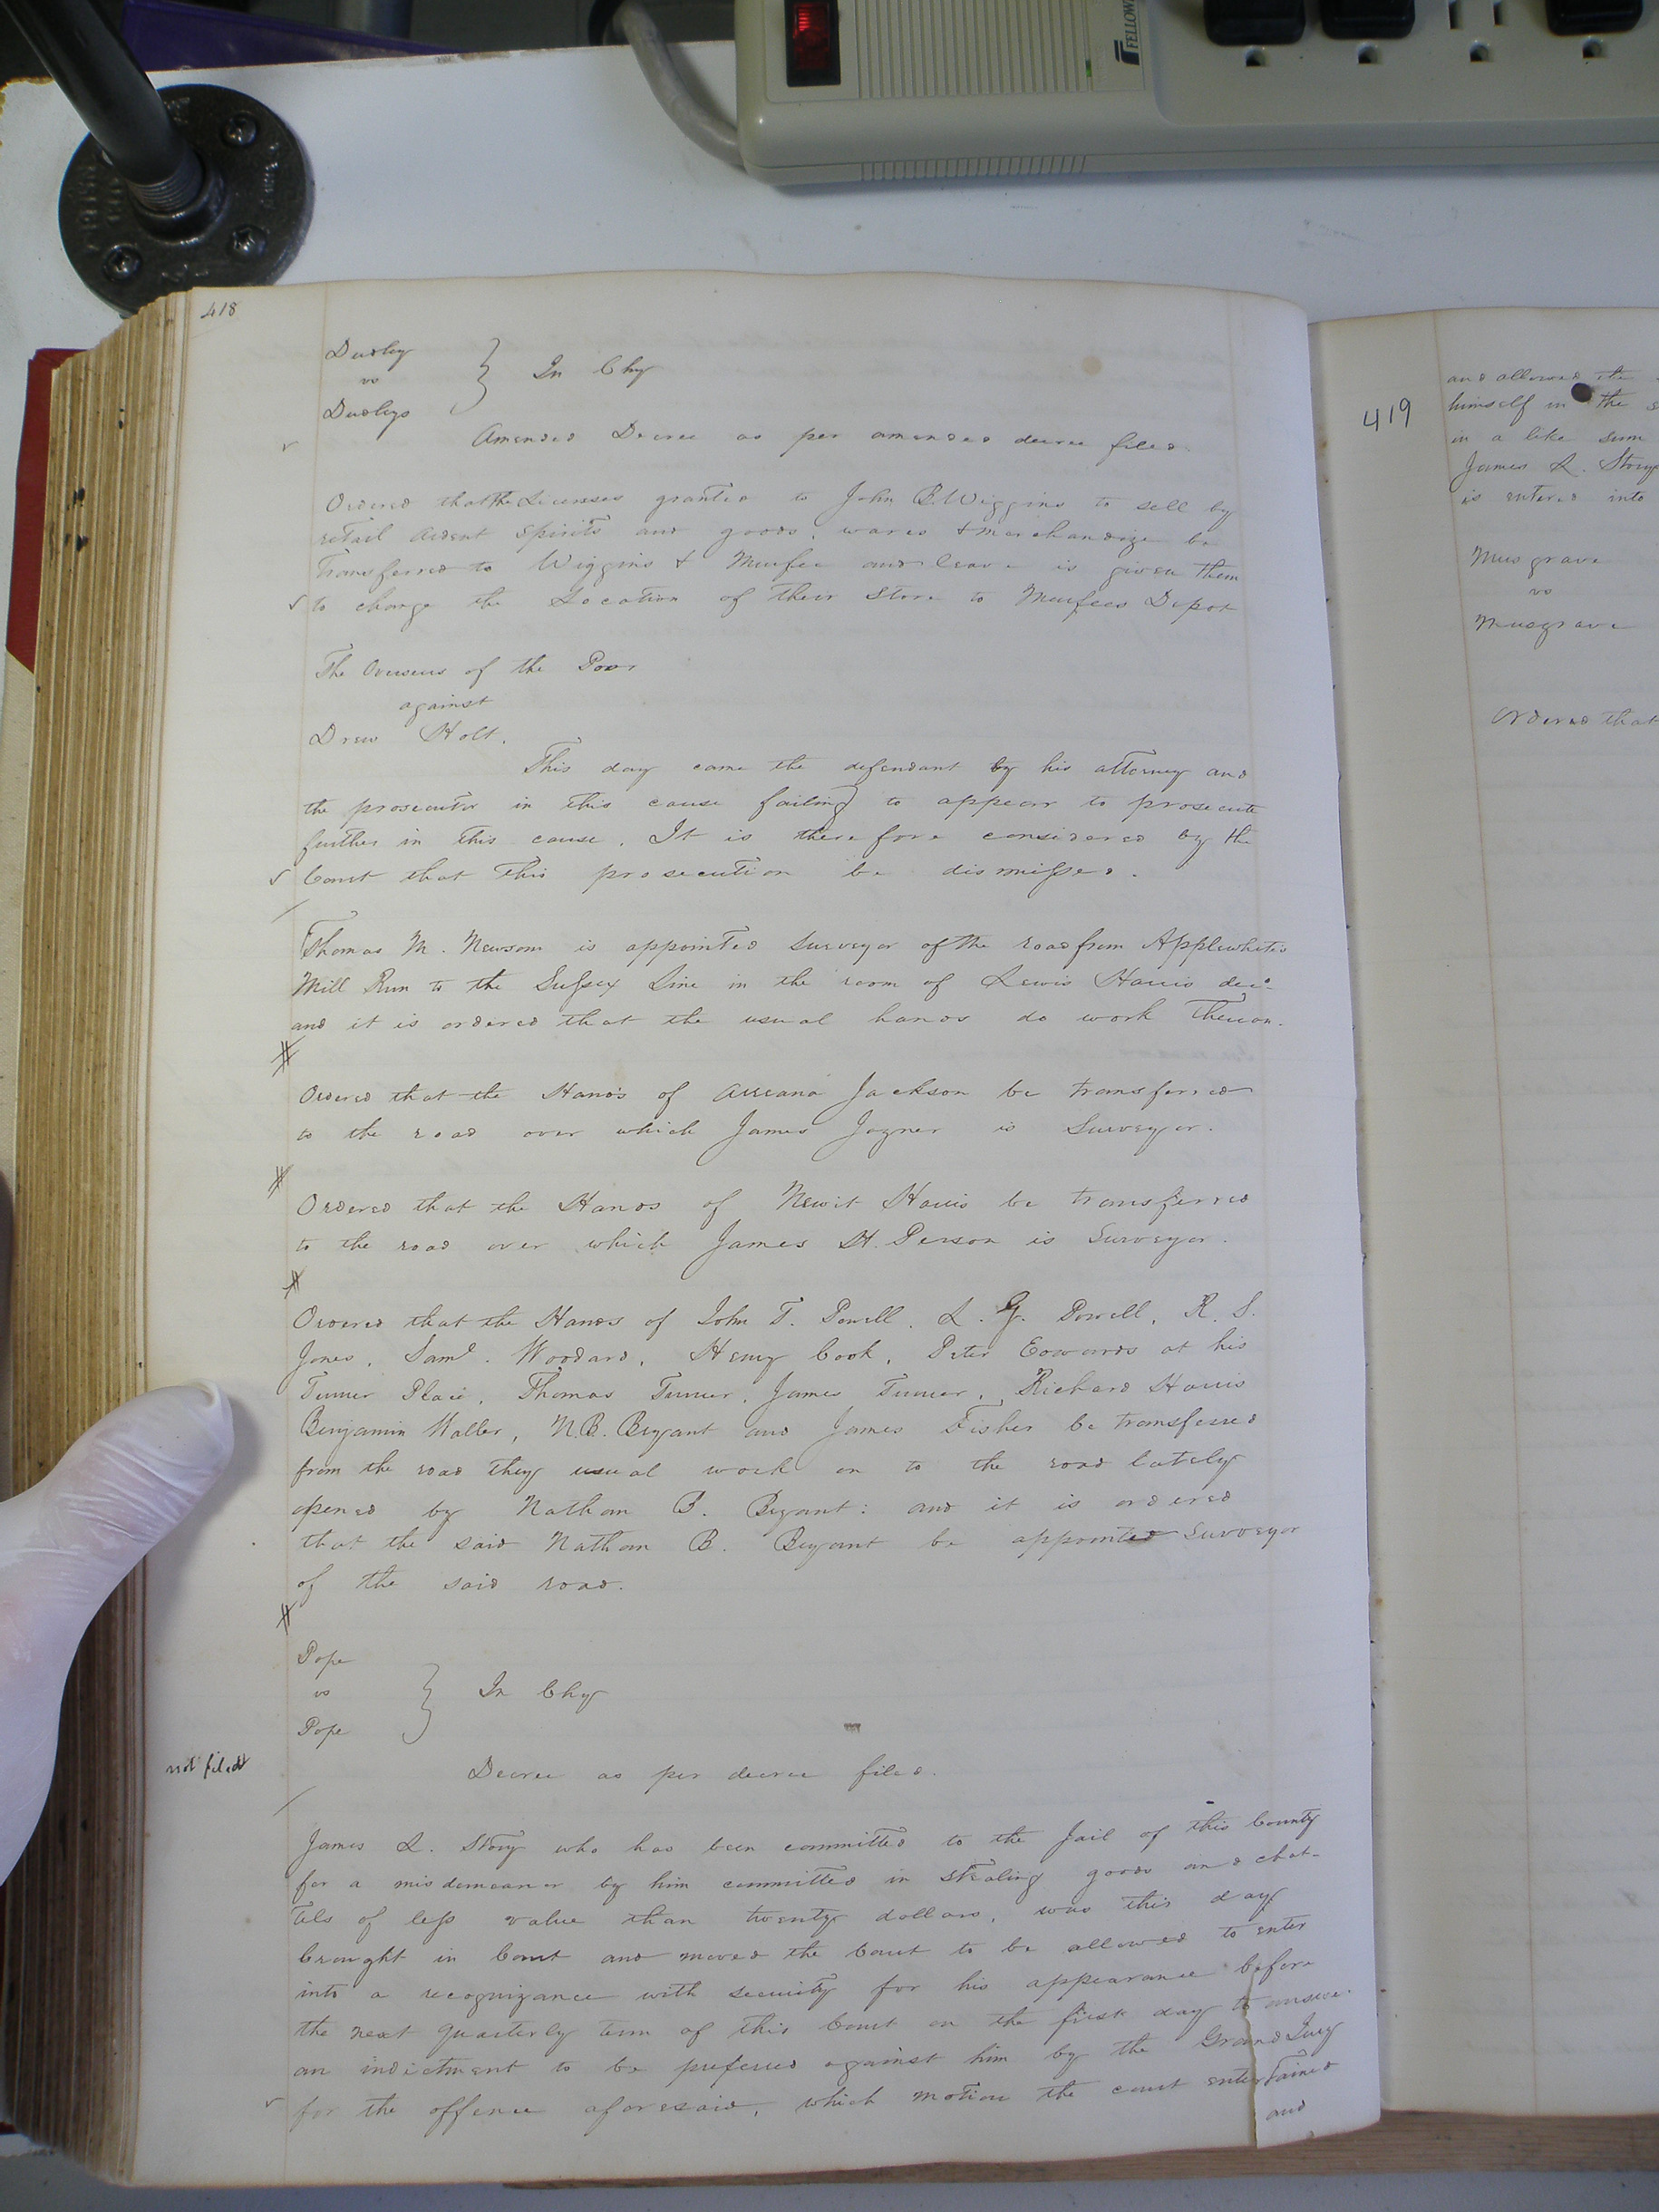 FELLOW
418
Dudley
vs
Dudleys
} In Chy
Amended Decree as per amended decree filed.
Ordered that the Licenses granted to John B. Wiggins to sell by
retail ardent spirits and goods, wares & merchandize be
Transferred to Wiggins & Murfee and leave is given them
to change the Location of their Store to Murfees Depot
The Overseers of the Poor
against
Drew Holt.
This day came the defendant by his attorney and
the prosecutor in this cause failing to appear to prosecute
further in this cause. It is therefore considered by the
Court that this prosecution be dismissed.
Thomas M. Newsom is appointed Surveyor of the road from Applewhites
Mill Run to the Sussex Line in the room of Lewis Harris decd
and it is ordered that the usual hands do work Thereon.
Ordered that the Hands of Jackson be transferred
to the road over which James Joyner is Surveyor.
Ordered that the Hands of Newit Harris be transferred
to the road over which James H. Person is Surveyor.
Ordered that the Hands of John T. Powell, L. G. Powell, R. S.
Jones, Saml. Woodard, Henry Cook, Peter Edwards at his
Turner Place, Thomas Turner, James Turner, Richard Harris
Benjamin Waller, N. B. Bryant and James Fisher be transferred
from the road they usual work on to the road lately
opened by Nathan B. Bryant: and it is ordered
that the said Nathan B. Bryant be appointed Surveyor
of the said road.
Pope
vs
Pope
} In Chy
not filed
Decree as per decree filed.
James L. Story who has been committed to the Jail of this County
for a misdemeanor by him committed in stealing goods and chat-
tels of less value than twenty dollars, was this day
brought in Court and moved the Court to be allowed to enter
into a recognizance with security for his appearance before
the next quarterly term of this Court on the first day to answer
an indictment to be preferred against him by the Grand Jury
for the offence aforesaid, which motion the court entertained
and
419
and allowed the
himself in the s
in a like sum
James L. Story
is entered into
Musgrave
vs
Musgrave
Ordered that